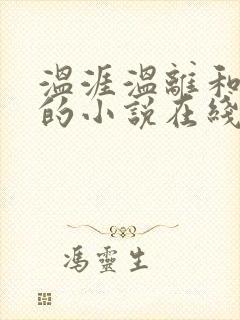 温涯温離和
的小說在綫
馮靈生